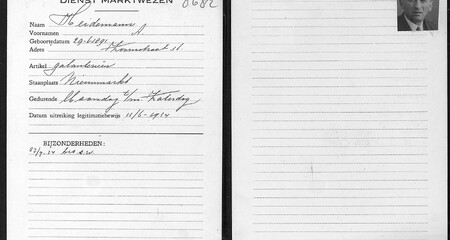 DIENST MARKTWEZEN 0682
Naam Heidemann
Voornamen A.
Geboortedatum 29-6-1891
Adres
Artikel galanterieën
Staanplaats Nieuwmarkt
Gedurende Maandag t/m Zaterdag
Datum uitreiking legitimatiebewijs 11/6-1914
BIJZONDERHEDEN: